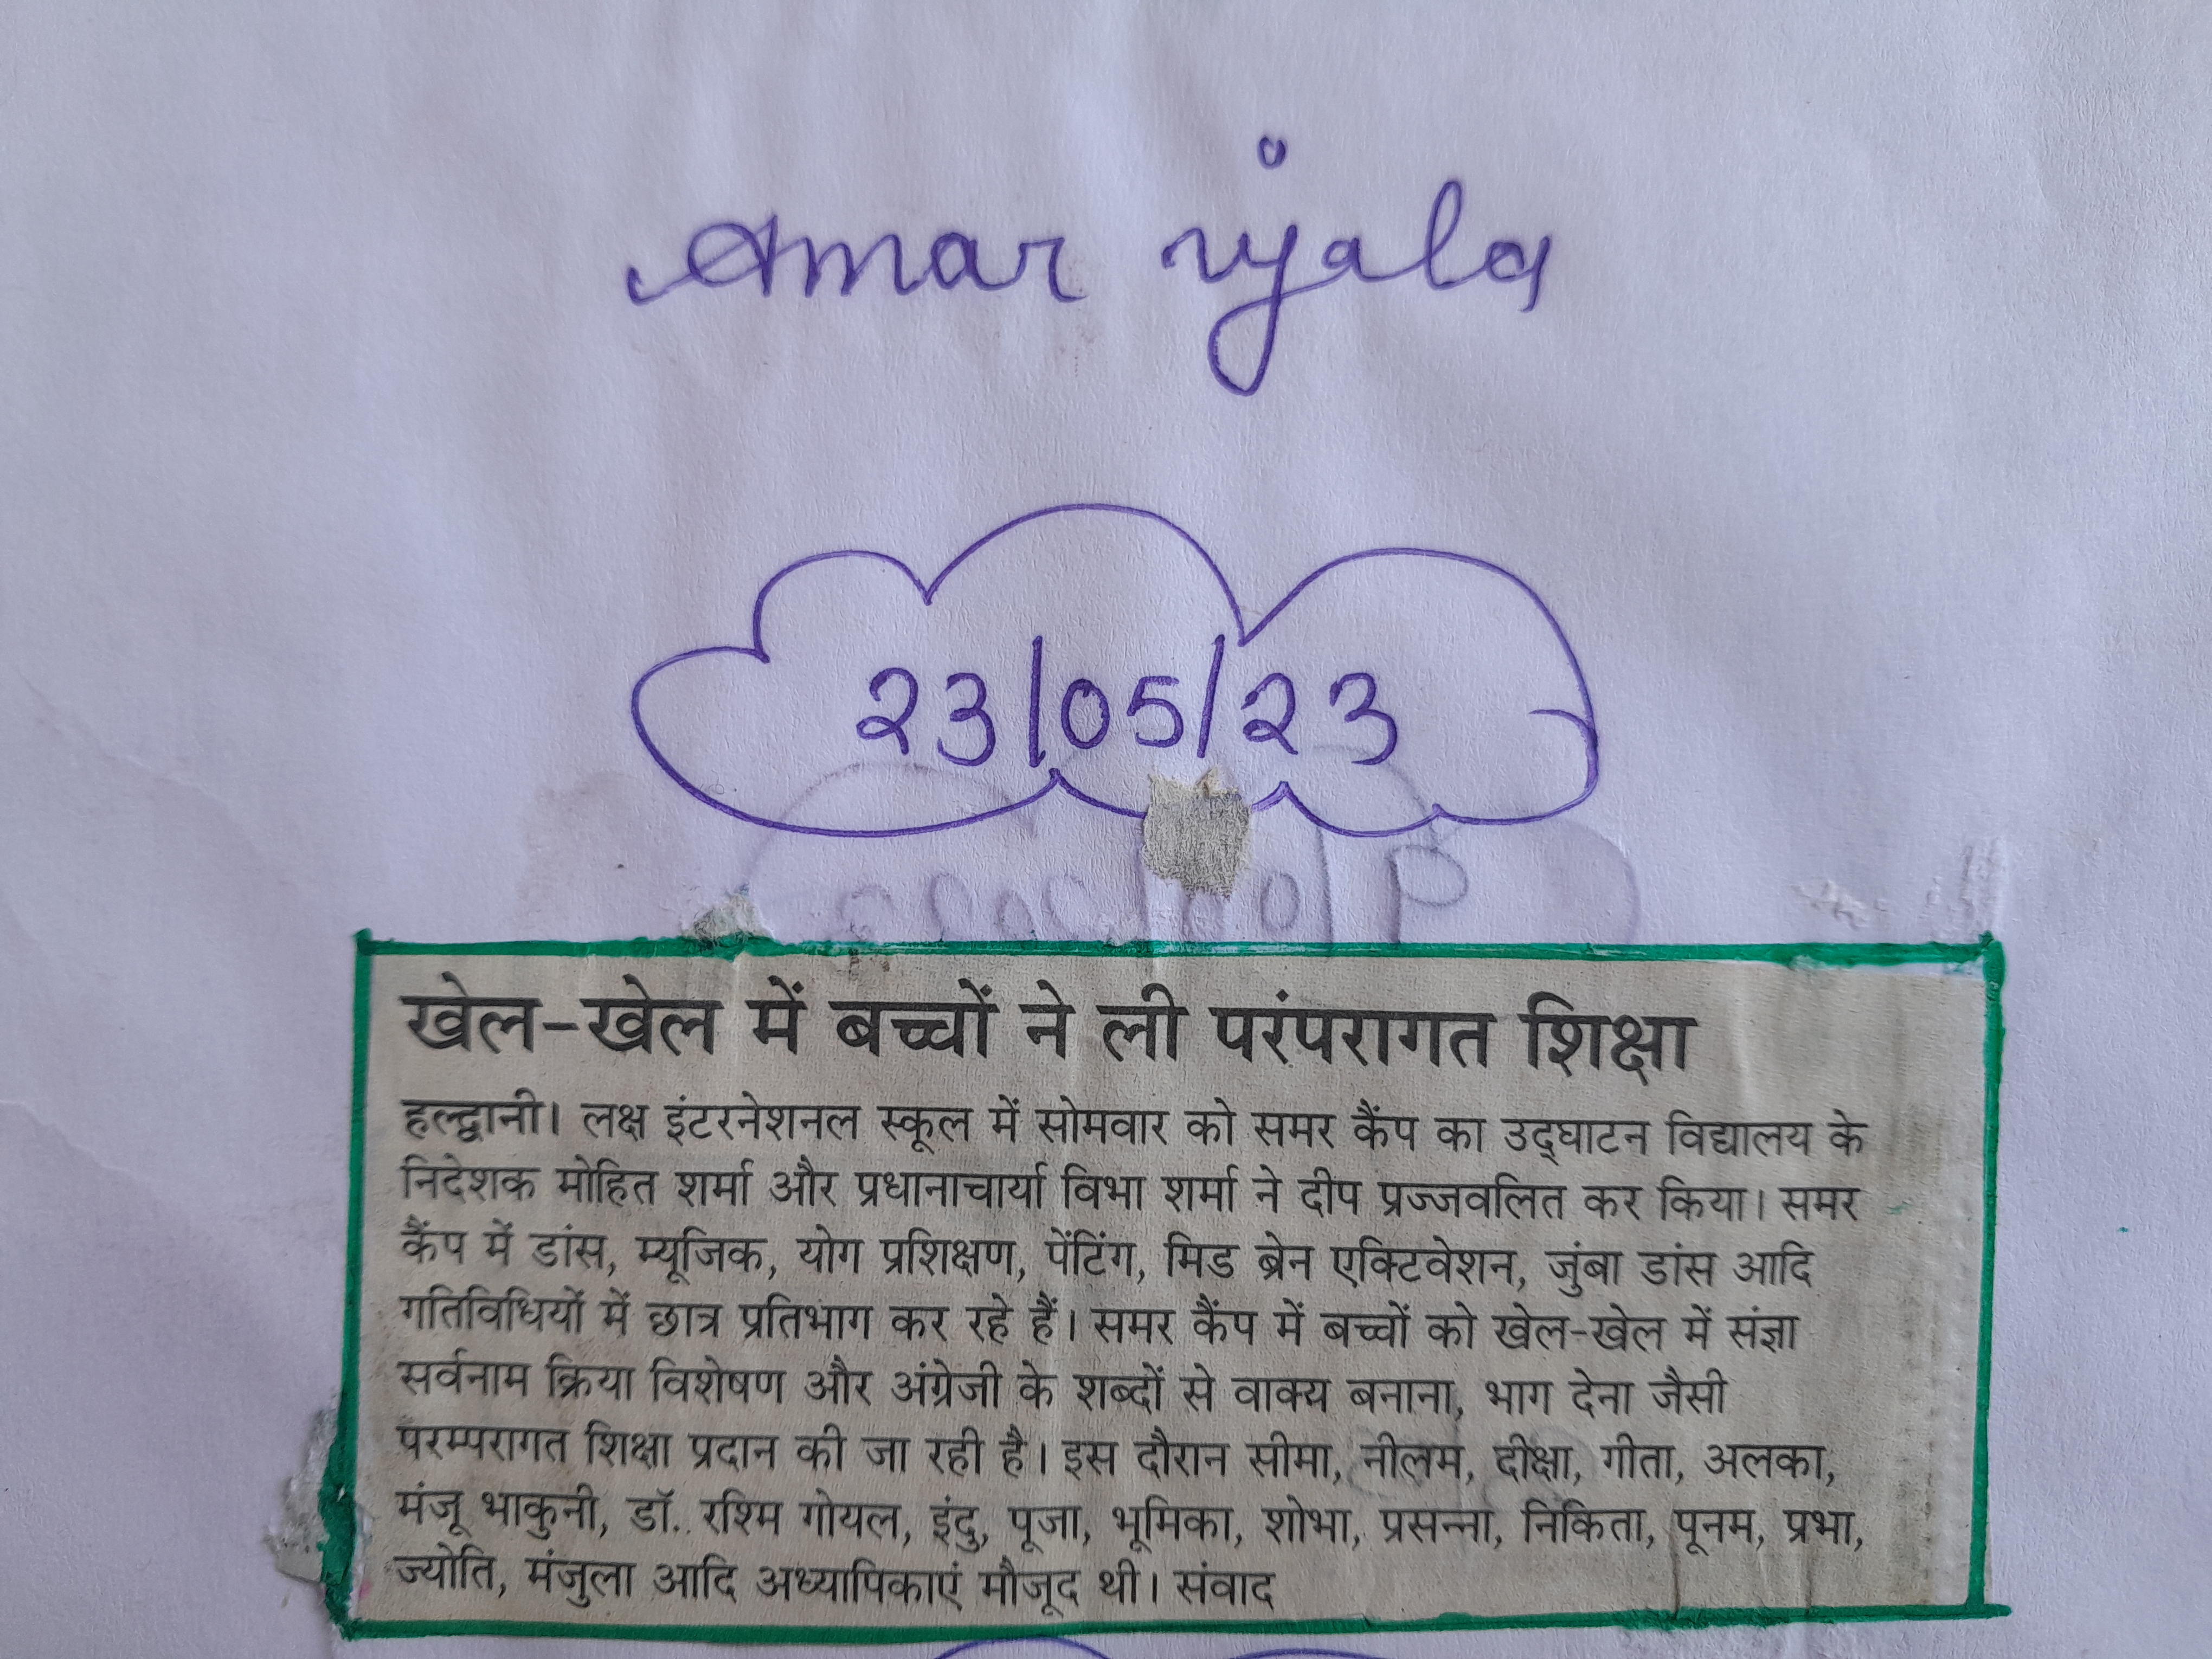 Amar ujala
23/05/23
खेल-खेल में बच्चों ने ली परंपरागत शिक्षा
हल्द्वानी। लक्ष इंटरनेशनल स्कूल में सोमवार को समर कैंप का उद्‌घाटन विद्यालय के
निदेशक मोहित शर्मा और प्रधानाचार्या विभा शर्मा ने दीप प्रज्जवलित कर किया। समर
कैंप में डांस, म्यूजिक, योग प्रशिक्षण, पेंटिंग, मिड ब्रेन एक्टिवेशन, जुंबा डांस आदि
गतिविधियों में छात्र प्रतिभाग कर रहे हैं। समर कैंप में बच्चों को खेल-खेल में संज्ञा
सर्वनाम क्रिया विशेषण और अंग्रेजी के शब्दों से वाक्य बनाना, भाग देना जैसी
परम्परागत शिक्षा प्रदान की जा रही है। इस दौरान सीमा, नीलम, दीक्षा, गीता, अलका,
मंजू भाकुनी, डॉ. रश्मि गोयल, इंदु, पूजा, भूमिका, शोभा, प्रसन्ना, निकिता, पूनम, प्रभा,
ज्योति, मंजुला आदि अध्यापिकाएं मौजूद थी। संवाद